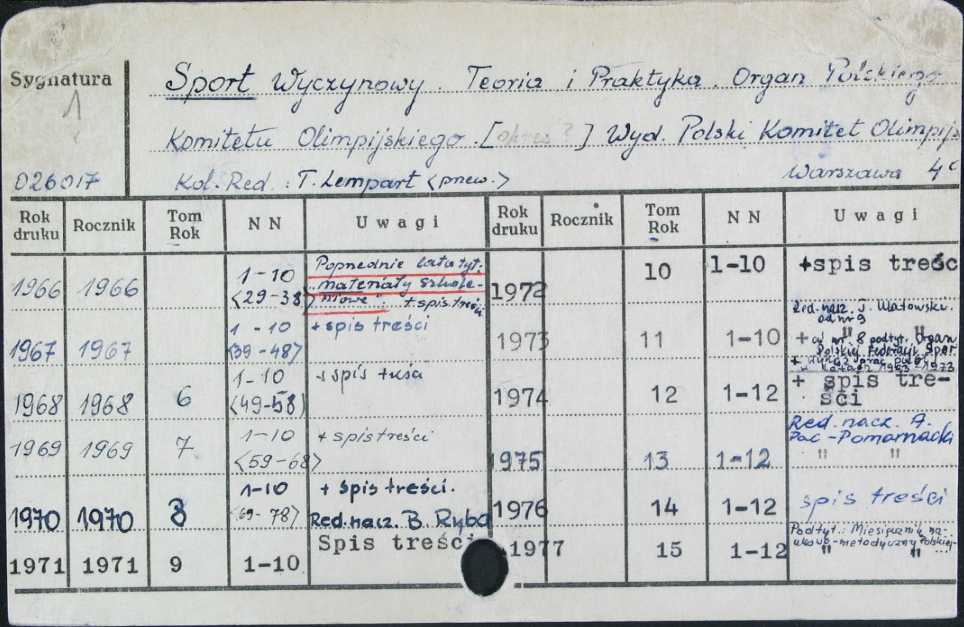 Sygnatura
1
026017
Sport Wyczynowy. Teoria i Praktyka. Organ Polskiego
Komitetu Olimpijskiego. [okres?] Wyd. Polski Komitet Olimpijs
Kol. Red. : T. Lempart <pnew.> Warszawa 4°
Rok druku Rocznik Tom Rok N N Uwagi Rok druku Rocznik Tom Rok N N Uwagi
1966 1966 1-10 <29-38> Poprzednie lata tyt. "materiały szkole-niowe". + spis treści
1967 1967 1-10 <39-48> + spis treści
1968 1968 6 1-10 <49-58>
1969 1969 7 1-10 <59-68> + spis treści
1970 1970 8 1-10 <69-78> + spis treści. Red. nacz. B. Ryba
1971 1971 9 1-10 Spis treści
1972 10 1-10 +spis treśc
1973 11 1-10 Red. nacz. J. Watowski. od nr 9 + " " od nr 8 podtyt. Organ Polskiej Federacji Spor.
1974 12 1-12 + spis tre-ści
1975 13 1-12 Red. nacz. A. Pac-Pomarnacki " "
1976 14 1-12 spis treści
1977 15 1-12 Podtyt.: Miesięcznik na-ukowo-metodyczny Polskiej " "